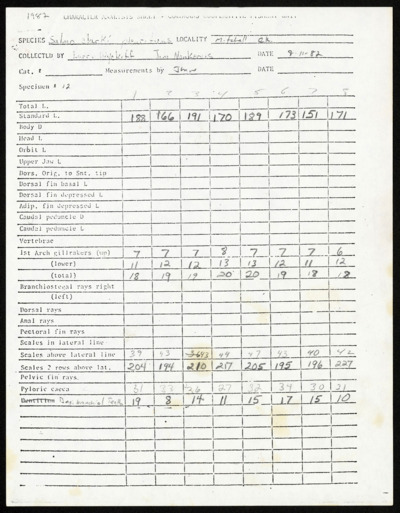 1982 CHARACTER ANALYSIS SHEET - COLORADO COOPERATIVE FISHERY UNIT
SPECIES Salmo clarki LOCALITY Mitchell Ck
COLLECTED BY DATE 9-11-82
Cat. # Measurements by DATE
Specimen # 12 1 2 3 4 5 6 7 8
Total L.
Standard L. 188 166 191 170 129 173 151 171
Body D
Head L
Orbit L
Upper Jaw L
Dors. Orig. to Snt. tip
Dorsal fin basal L
Dorsal fin depressed L
Adip. fin depressed L
Caudal peduncle D
Caudal peduncle L
Vertebrae
1st Arch gillrakers (up) 7 7 7 8 7 7 7 6
(lower) 11 12 12 13 13 12 11 12
(total) 18 19 19 20 20 19 18 18
Branchiostegal rays right
(left)
Dorsal rays
Anal rays
Pectoral fin rays
Scales in lateral line
Scales above lateral line 39 43 43 49 47 43 40 42
Scales 2 rows above lat. 204 194 210 217 205 195 196 227
Pelvic fin rays
Pyloric caeca 31 33 26 27 32 39 30 21
Basibranchial Teeth 19 8 14 11 15 17 15 10